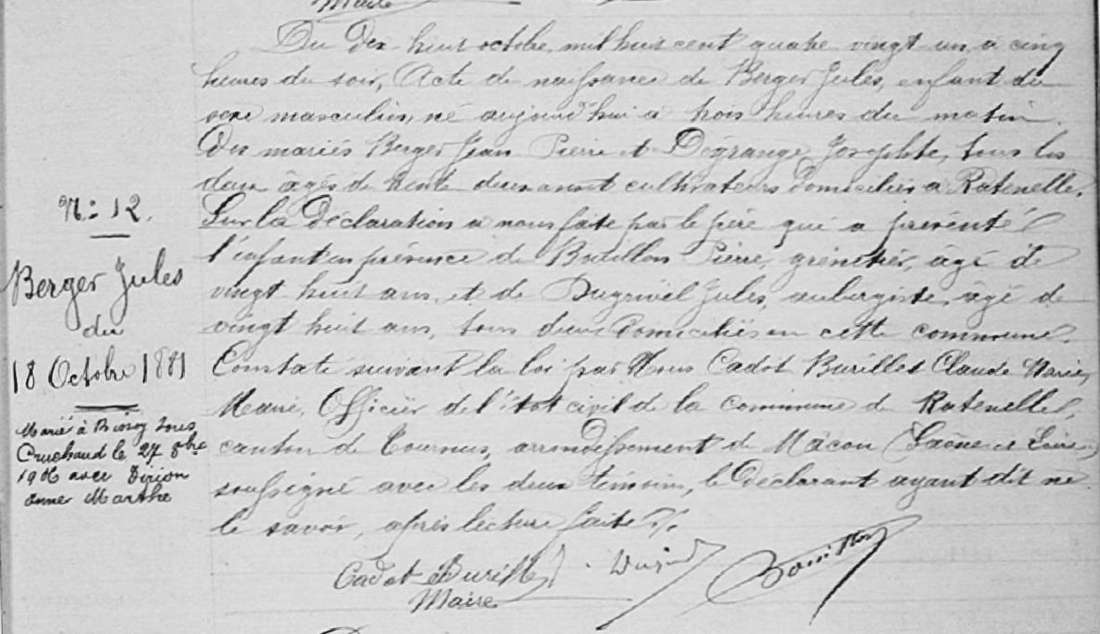 Maire
Du Dix huit octobre mil huit cent quatre vingt un à cinq
heures du soir, Acte de naissance de Berger Jules, enfant du
sexe masculin, né aujourd'hui à trois heures du matin.
Des mariés Berger Jean Pierre et Dégrange Josephte, tous les
deux âgés de trente deux ans et cultivateurs domiciliés à Ratenelle.
Sur la Déclaration à nous faite par le père qui a présenté
l'enfant en présence de Pierre, âgé de
vingt huit ans, et de Dugrivel Jules, aubergiste, âgé de
vingt huit ans, tous deux domiciliés en cette commune.
Constaté suivant la loi par Nous Cadot Burillet Claude Marie,
Maire, Officier de l'état civil de la commune de Ratenelle,
canton de Tournus, arrondissement de Mâcon (Saône et Loire)
soussigné avec les deux témoins, le Déclarant ayant dit ne
le savoir, après lecture faite ./.
Cadot Burillet
Maire
N: 12.
Berger Jules
du
18 Octobre 1881
Marié à Bissey sous
Cruchaud le 27 8bre
1906 avec
Marthe